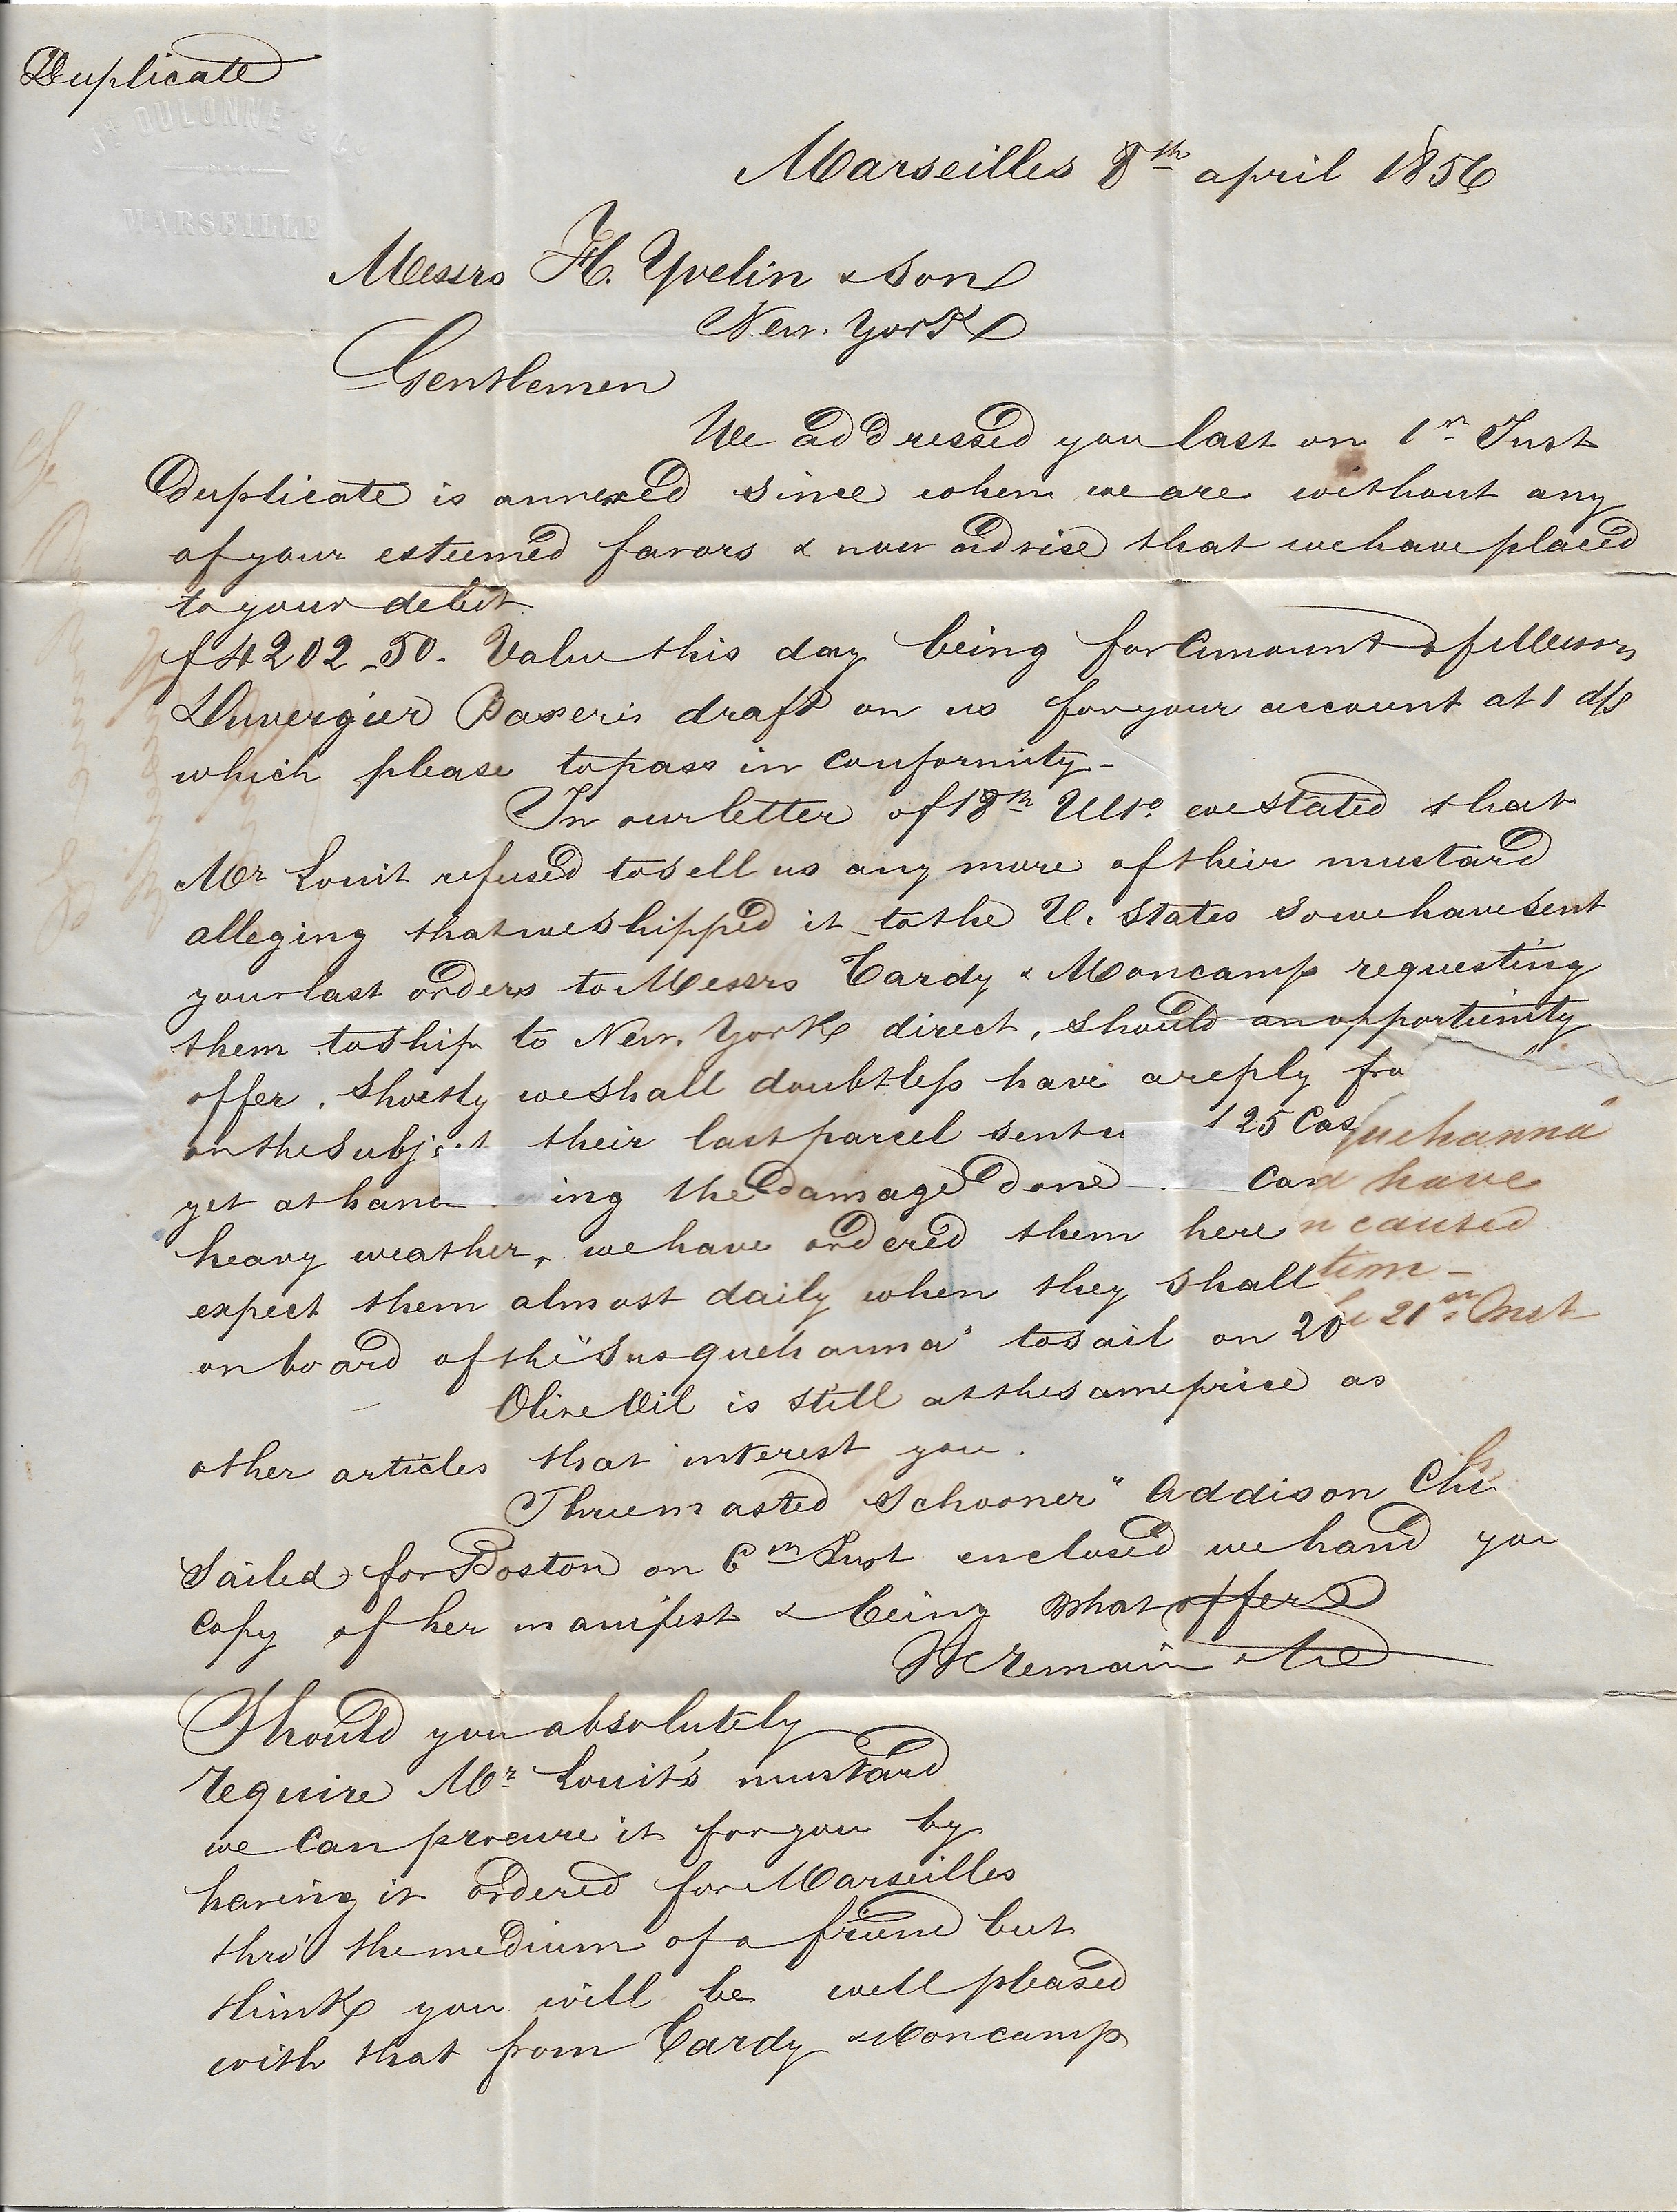 Duplicate
OULONNE & C.
MARSEILLE
Marseilles 8th april 1856
Messrs H. Yvelin & Son
New. York
Gentlemen
We addressed you last on 1st Inst
Duplicate is annexed since when we are without any
of your esteemed favors & now advise that we have placed
to your debit
f 4202.50. Value this day being for Amount of Messrs
Duvergier draft on us for your account at 1 d/s
which please to pass in conformity -
In our letter of 18th Ulto. we stated that
Mr Louit refused to sell us any more of their mustard
alleging that we shipped it to the U. States so we have sent
your last orders to Messrs Cardy & Moncamp requesting
them to ship to New York direct, should an opportunity
offer. Shortly we shall doubtless have a reply fro
on the subject their last parcel sent 125 Cas quehanna"
yet at han ing the damage done Can have
heavy weather, we have ordered them here n caused
expect them almost daily when they shall tion -
on board of the "Susquehanna" to sail on 20 21st Inst
Olive Oil is still at the same price as
other articles that interest you.
Three masted Schooner "Addison Chi
Sailed for Boston on 6th Inst enclosed we hand you
Copy of her manifest & being what offers
We remain &c
Should you absolutely
require Mr Louit's mustard
we can procure it for you by
having it ordered for Marseilles
thro' the medium of a friend but
think you will be well pleased
with that from Cardy & Moncamp